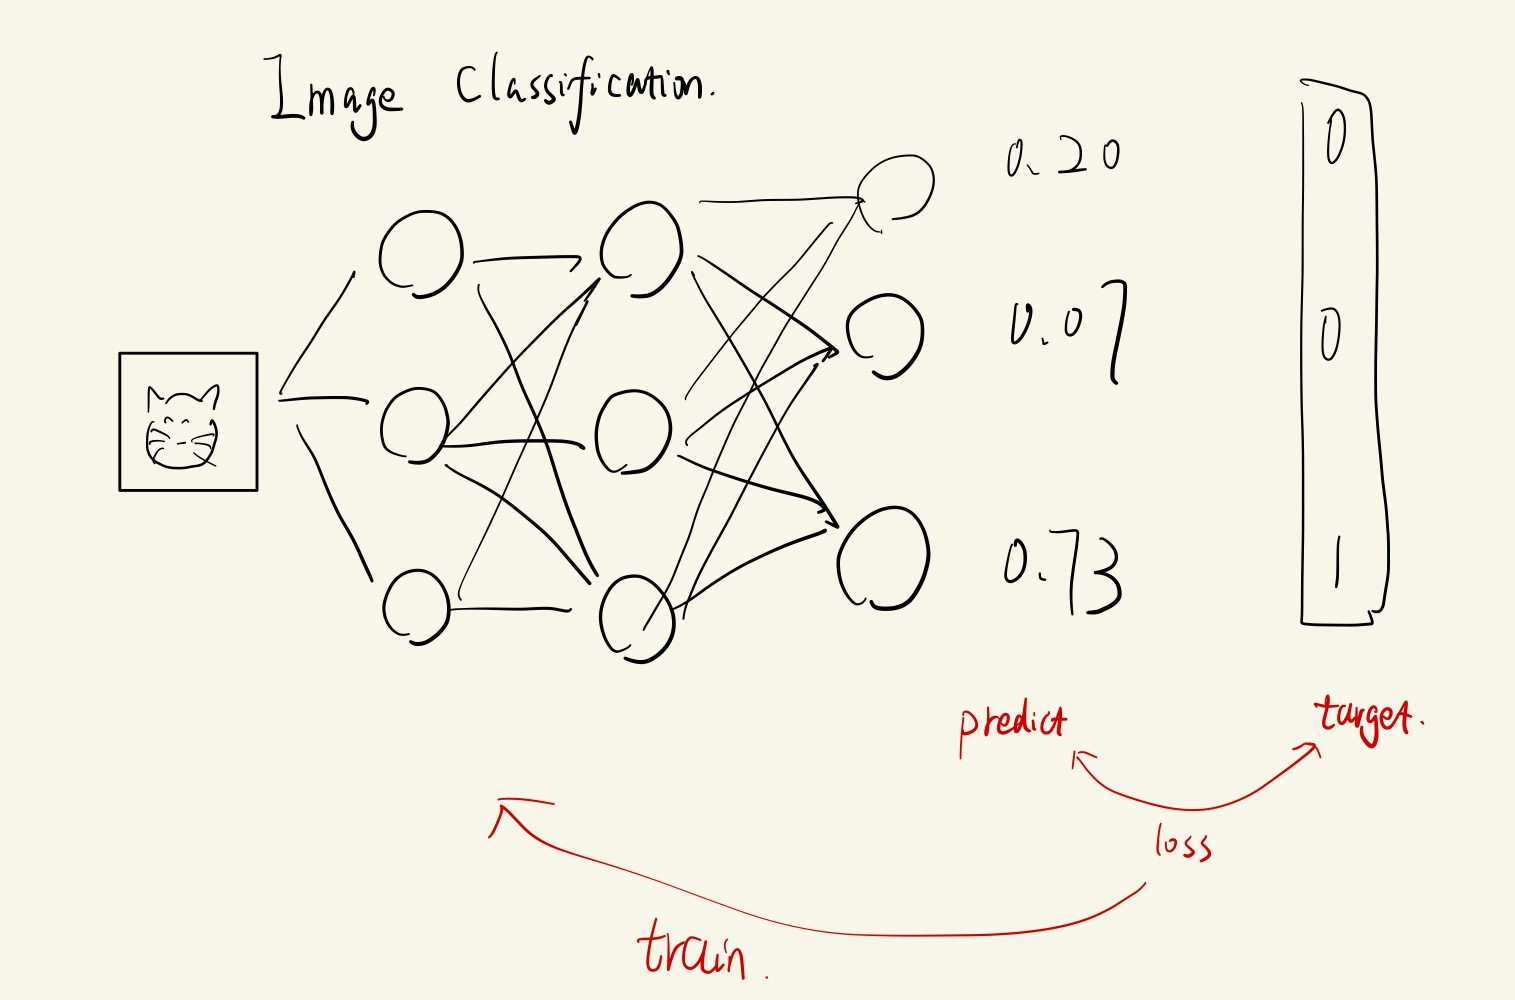 Image Classification.
0.20
0
0.07
0
0.73
1
predict
target.
loss
train.